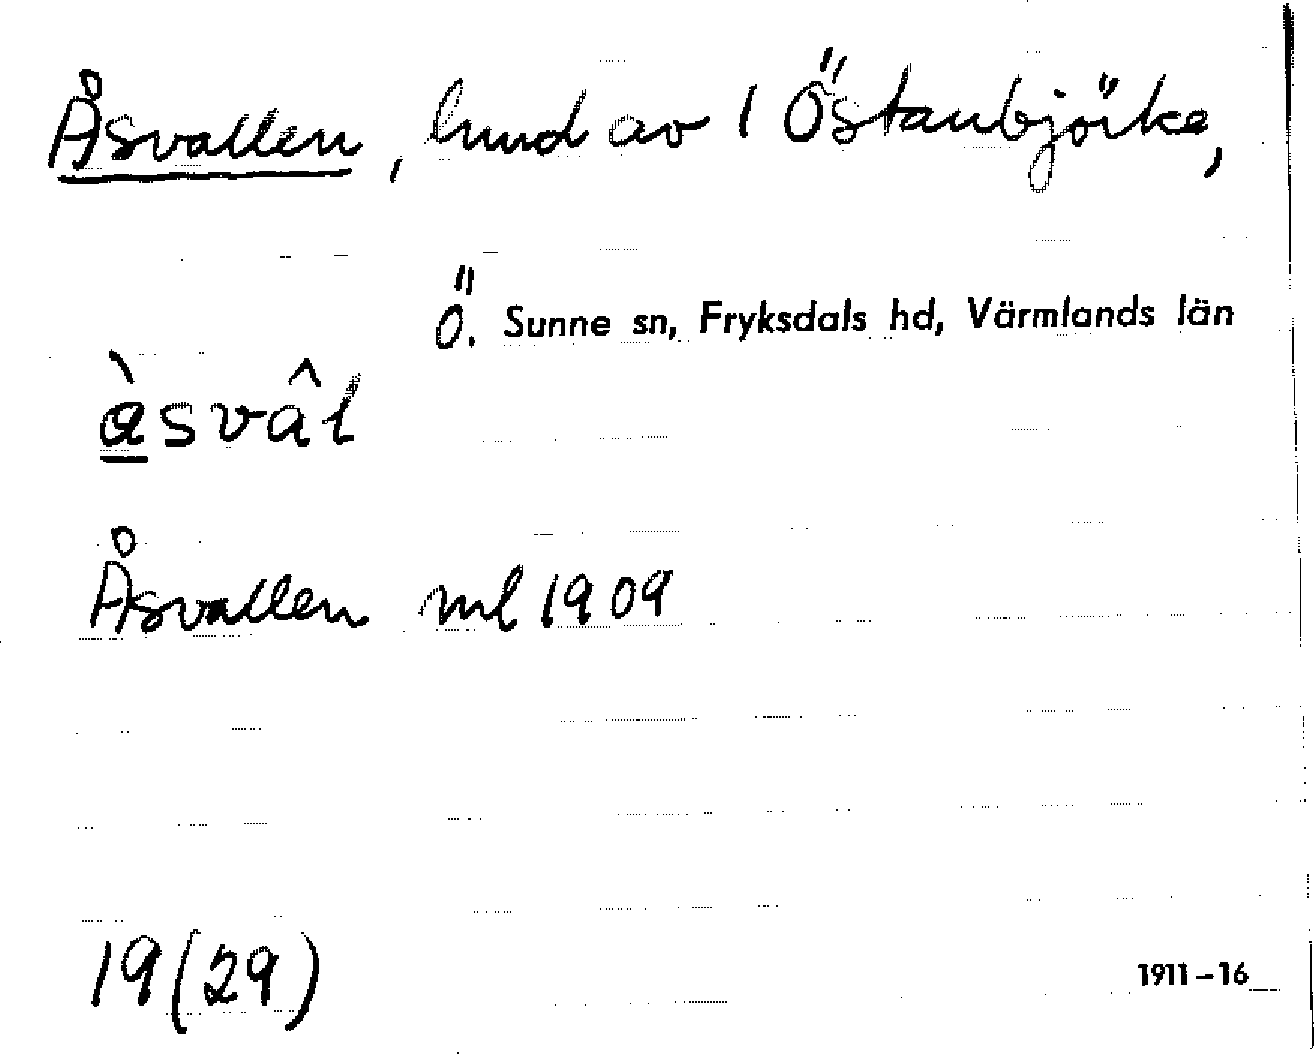 Åsvallen, hmd av 1 Östanbjörke,
Ö. Sunne sn, Fryksdals hd, Värmlands län
àsvâl
Åsvallen ml 1909
19(29)
1911-16